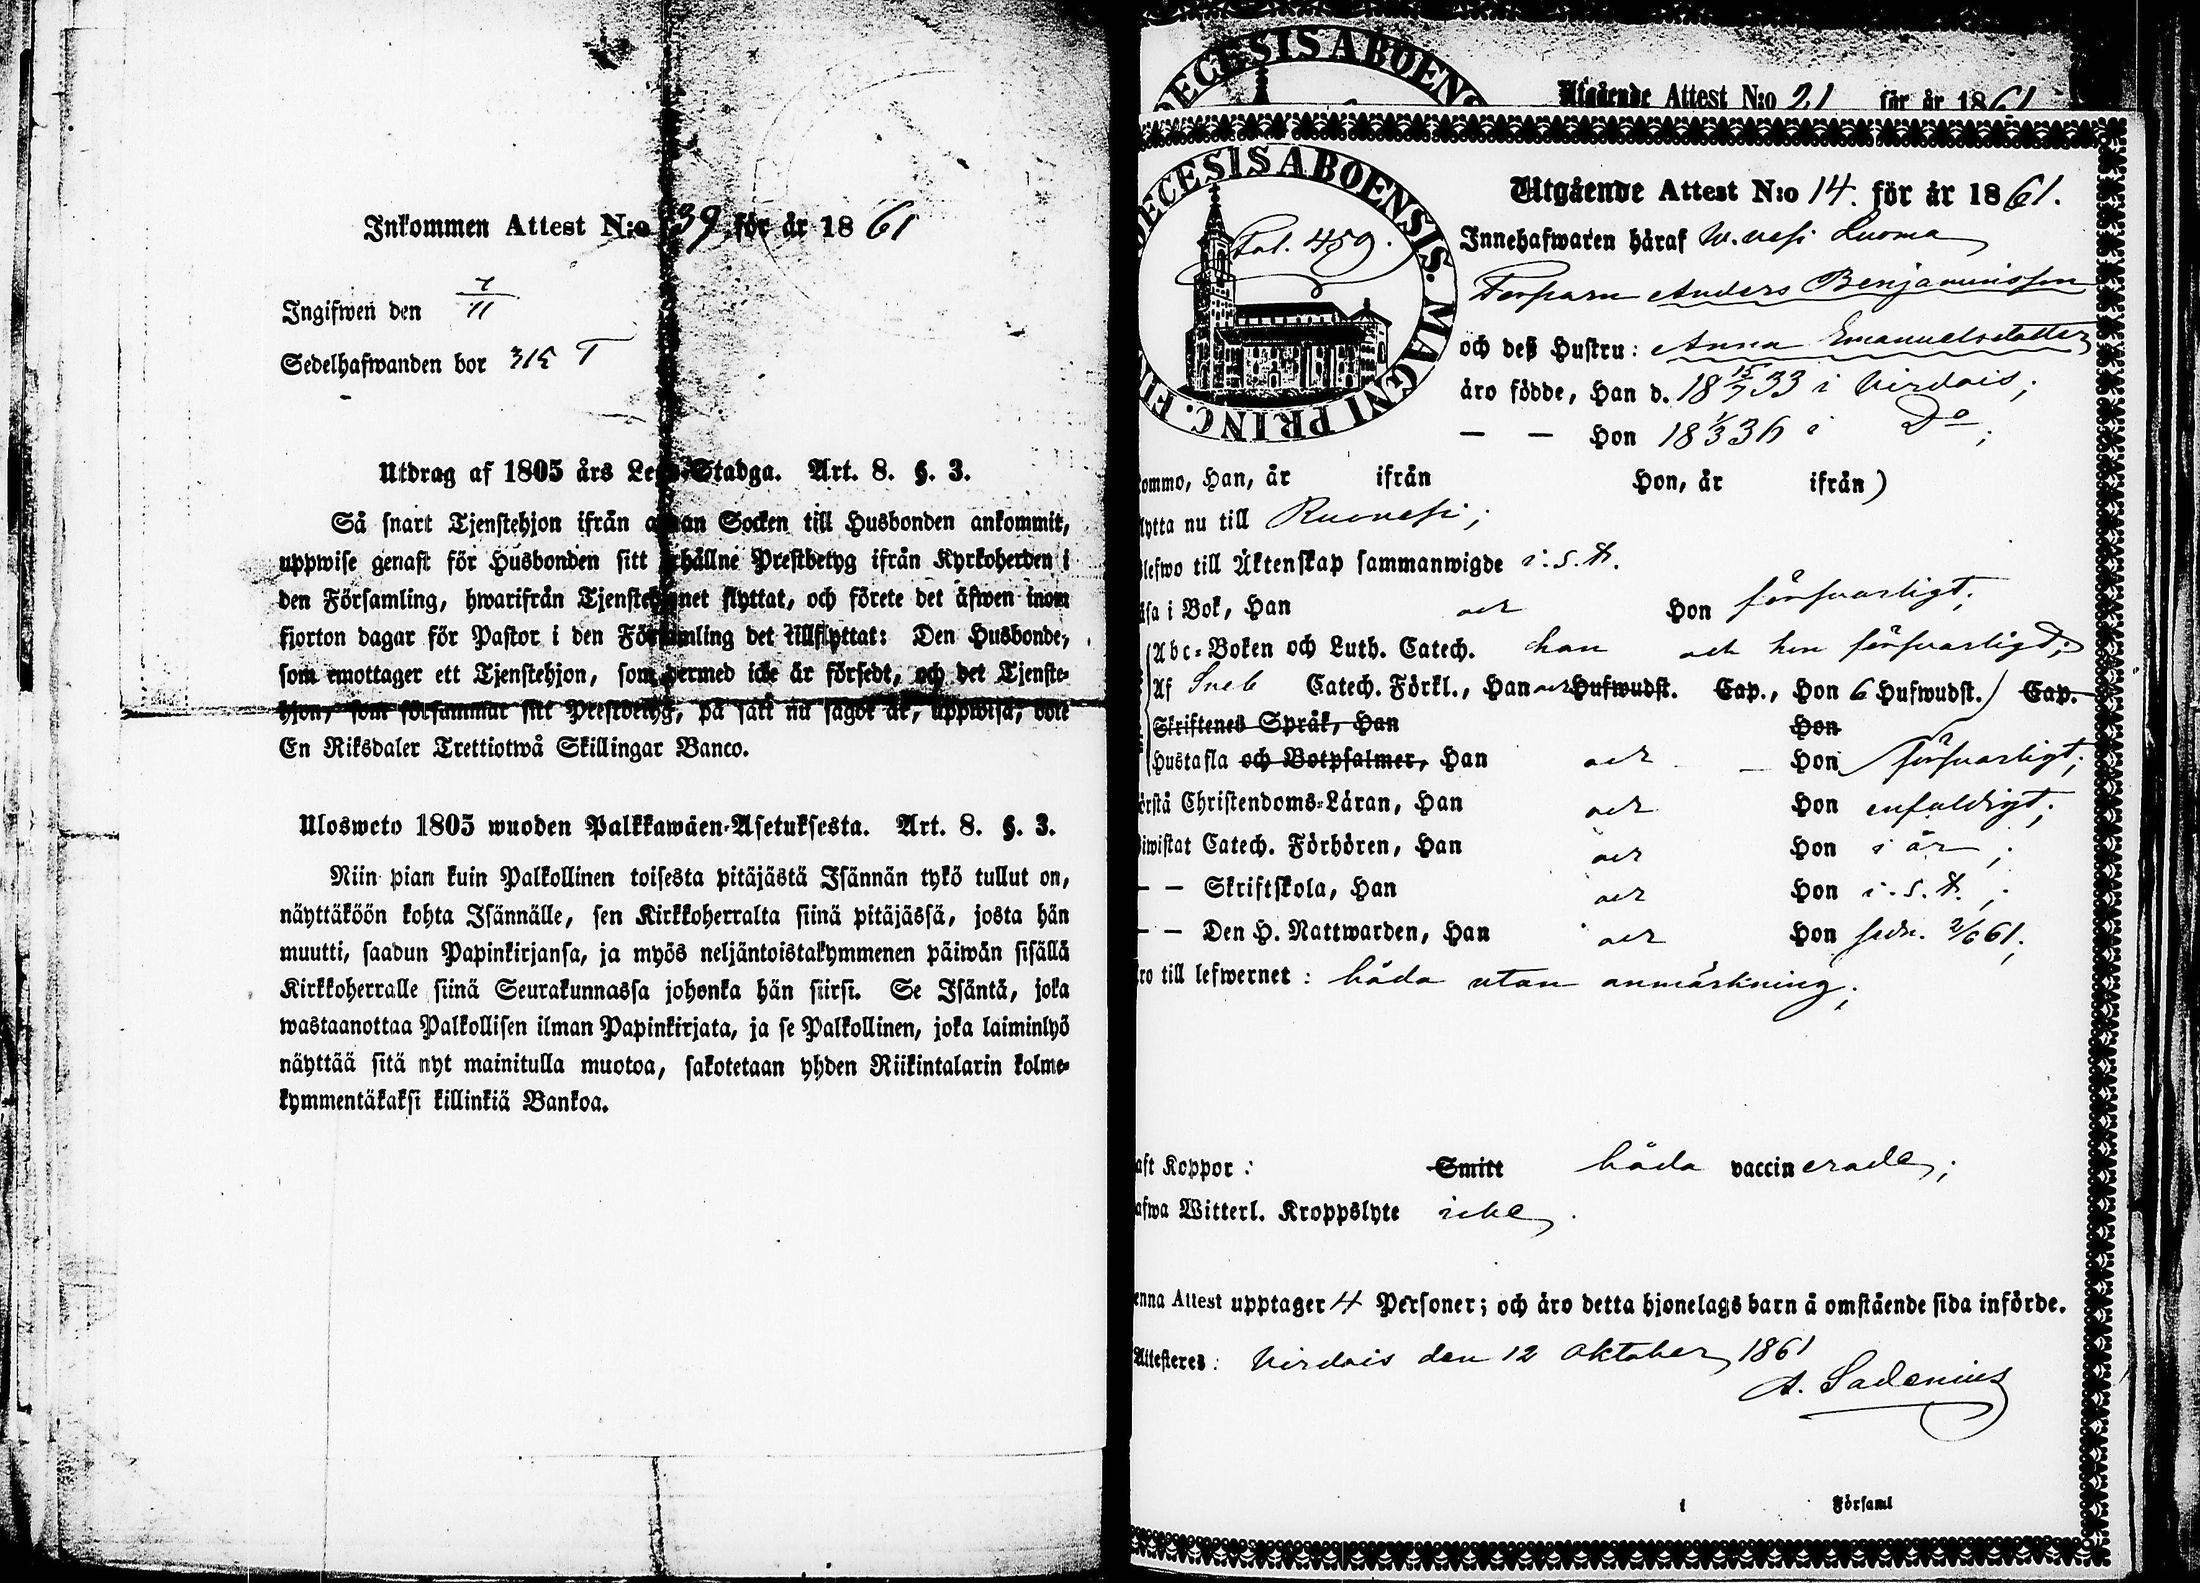 Inkommen Attest N:o 39 för år 1861
Ingifwen den 7/11
Sedelhafwanden bor 315 T
Utdrag af 1805 års Lego-Stadga. Art. 8. §. 3.
Så snart Tjenstehjon ifrån annan Socken till Husbonden ankommit,
uppwise genast för Husbonden sitt erhållne Prestbetyg ifrån Kyrkoherden i
den Församling, hwarifrån Tjenstehjonet flyttat, och förete det äfwen inom
fjorton dagar för Pastor i den Församling det tillflyttat: Den Husbonde,
som emottager ett Tjenstehjon, som dermed icke är försedt, och det Tjenste-
hjon, som försummar sitt Prestbetyg, på sätt nu sagdt är, uppwisa, böte
En Riksdaler Trettiotwå Skillingar Banco.
Ulosweto 1805 wuoden Palkkawäen-Asetuksesta. Art. 8. §. 3.
Niin pian kuin Palkollinen toisesta pitäjästä Isännän tykö tullut on,
näyttäköön kohta Isännälle, sen Kirkkoherralta siinä pitäjässä, josta hän
muutti, saadun Papinkirjansa, ja myös neljäntoistakymmenen päiwän sisällä
Kirkkoherralle siinä Seurakunnassa johonka hän siirsi. Se Isäntä, joka
wastaanottaa Palkollisen ilman Papinkirjata, ja se Palkollinen, joka laiminlyö
näyttää sitä nyt mainitulla muotoa, sakotetaan yhden Riikintalarin kolme-
kymmentäkaksi killinkiä Bankoa.
DECESIS ABOENS
Utgående Attest N:o 21 för år 1861
DECESIS ABOENSIS. MAGNI PRINC. FIN
Fol. 459.
Utgående Attest N:o 14. för år 1861.
Innehafwaren häraf W.vesi Luoma
Torparn Anders Benjaminsson
och deß Hustru: Anna Emanuelsdotter
äro födde, Han d. 18 15/7 33 i Virdois;
— — Hon 18 1/3 36 i Do;
ommo, Han, år ifrån Hon, år ifrån)
lytta nu till Ruovesi;
lefwo till Äktenskap sammanwigde i. s. å.
äsa i Bok, Han och Hon försvarligt;
Abc-Boken och Luth. Catech. han och hon försvarligt;
Af Sveb Catech. Förkl., Han och Hufwudst. Cap., Hon 6 Hufwudst. Cap.
Skriftenes Språk, Han Hon
Hustafla och Botpsalmer, Han och — Hon försvarligt;
örstå Christendoms-Läran, Han och Hon enfaldigt;
iwistat Catech. Förhören, Han och Hon i år;
— — Skriftskola, Han och Hon i. s. å.;
— — Den H. Nattwarden, Han och Hon sedn. 2/6 61;
ro till lefwernet: båda utan anmärkning;
aft Koppor: Smitt båda vaccinerade;
afwa Witterl. Kroppslyte icke.
enna Attest upptager 4 Personer; och äro detta hjonelags barn å omstående sida införde.
Attesteres: Virdois den 12 Oktober 1861
A. Sadenius
i Församl